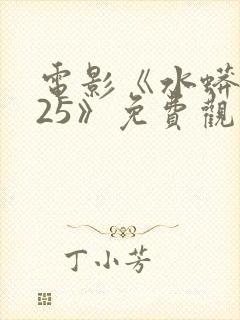 電影《水蟒
25》免費觀
丁小芳